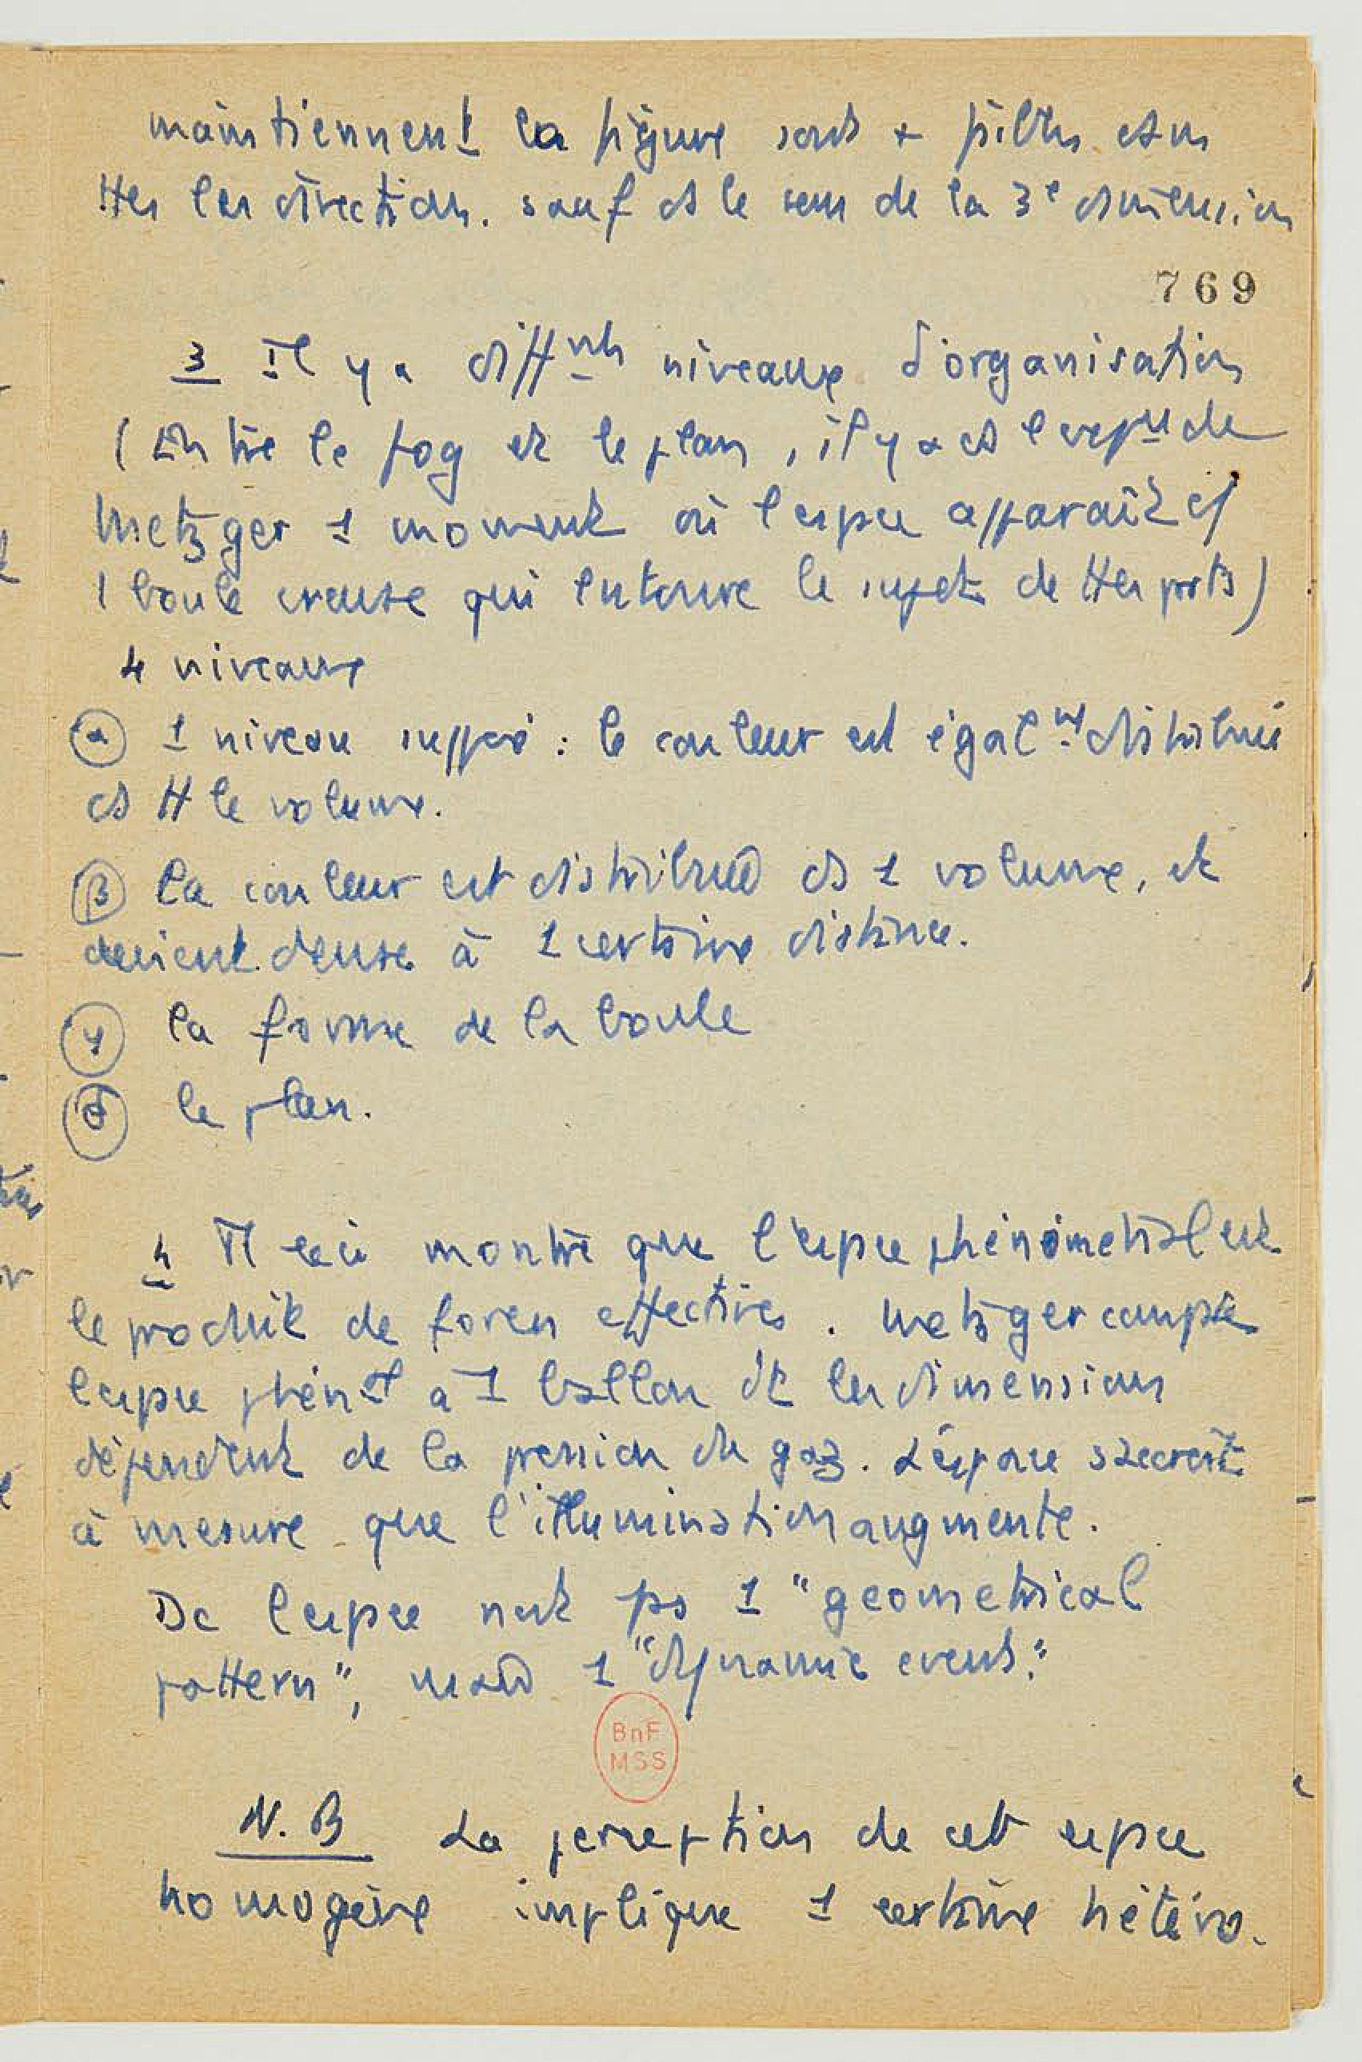 maintiennent la figure sont + faibles dans
ttes les directions. sauf ds le sens de la 3e dimension
769
3 Il y a diffnts niveaux d'organisation
(Entre le fog et le plan, il y a ds l'exp de
Metzger 1 moment où l'espace apparaît c/
1 boule creuse qui entoure le sujet de ttes parts)
4 niveaux
α 1 niveau supposé : la couleur est égalt distribuée
ds tt le volume.
β la couleur est distribuée ds 1 volume, et
devient dense à 1 certaine distance.
γ la forme de la boule
δ le plan.
4 Tt ceci montre que l'espace phénoménal est
le produit de forces effectives. Metzger compare
l'espace phénal à 1 ballon dt les dimensions
dépendent de la pression du gaz. L'espace s'accroît
à mesure que l'illumination augmente.
Dc l'espace n'est pas 1 "geometrical
pattern", mais 1 "dynamic event".
BnF
MSS
N.B La perception de cet espace
homogène implique 1 certaine hétéro-